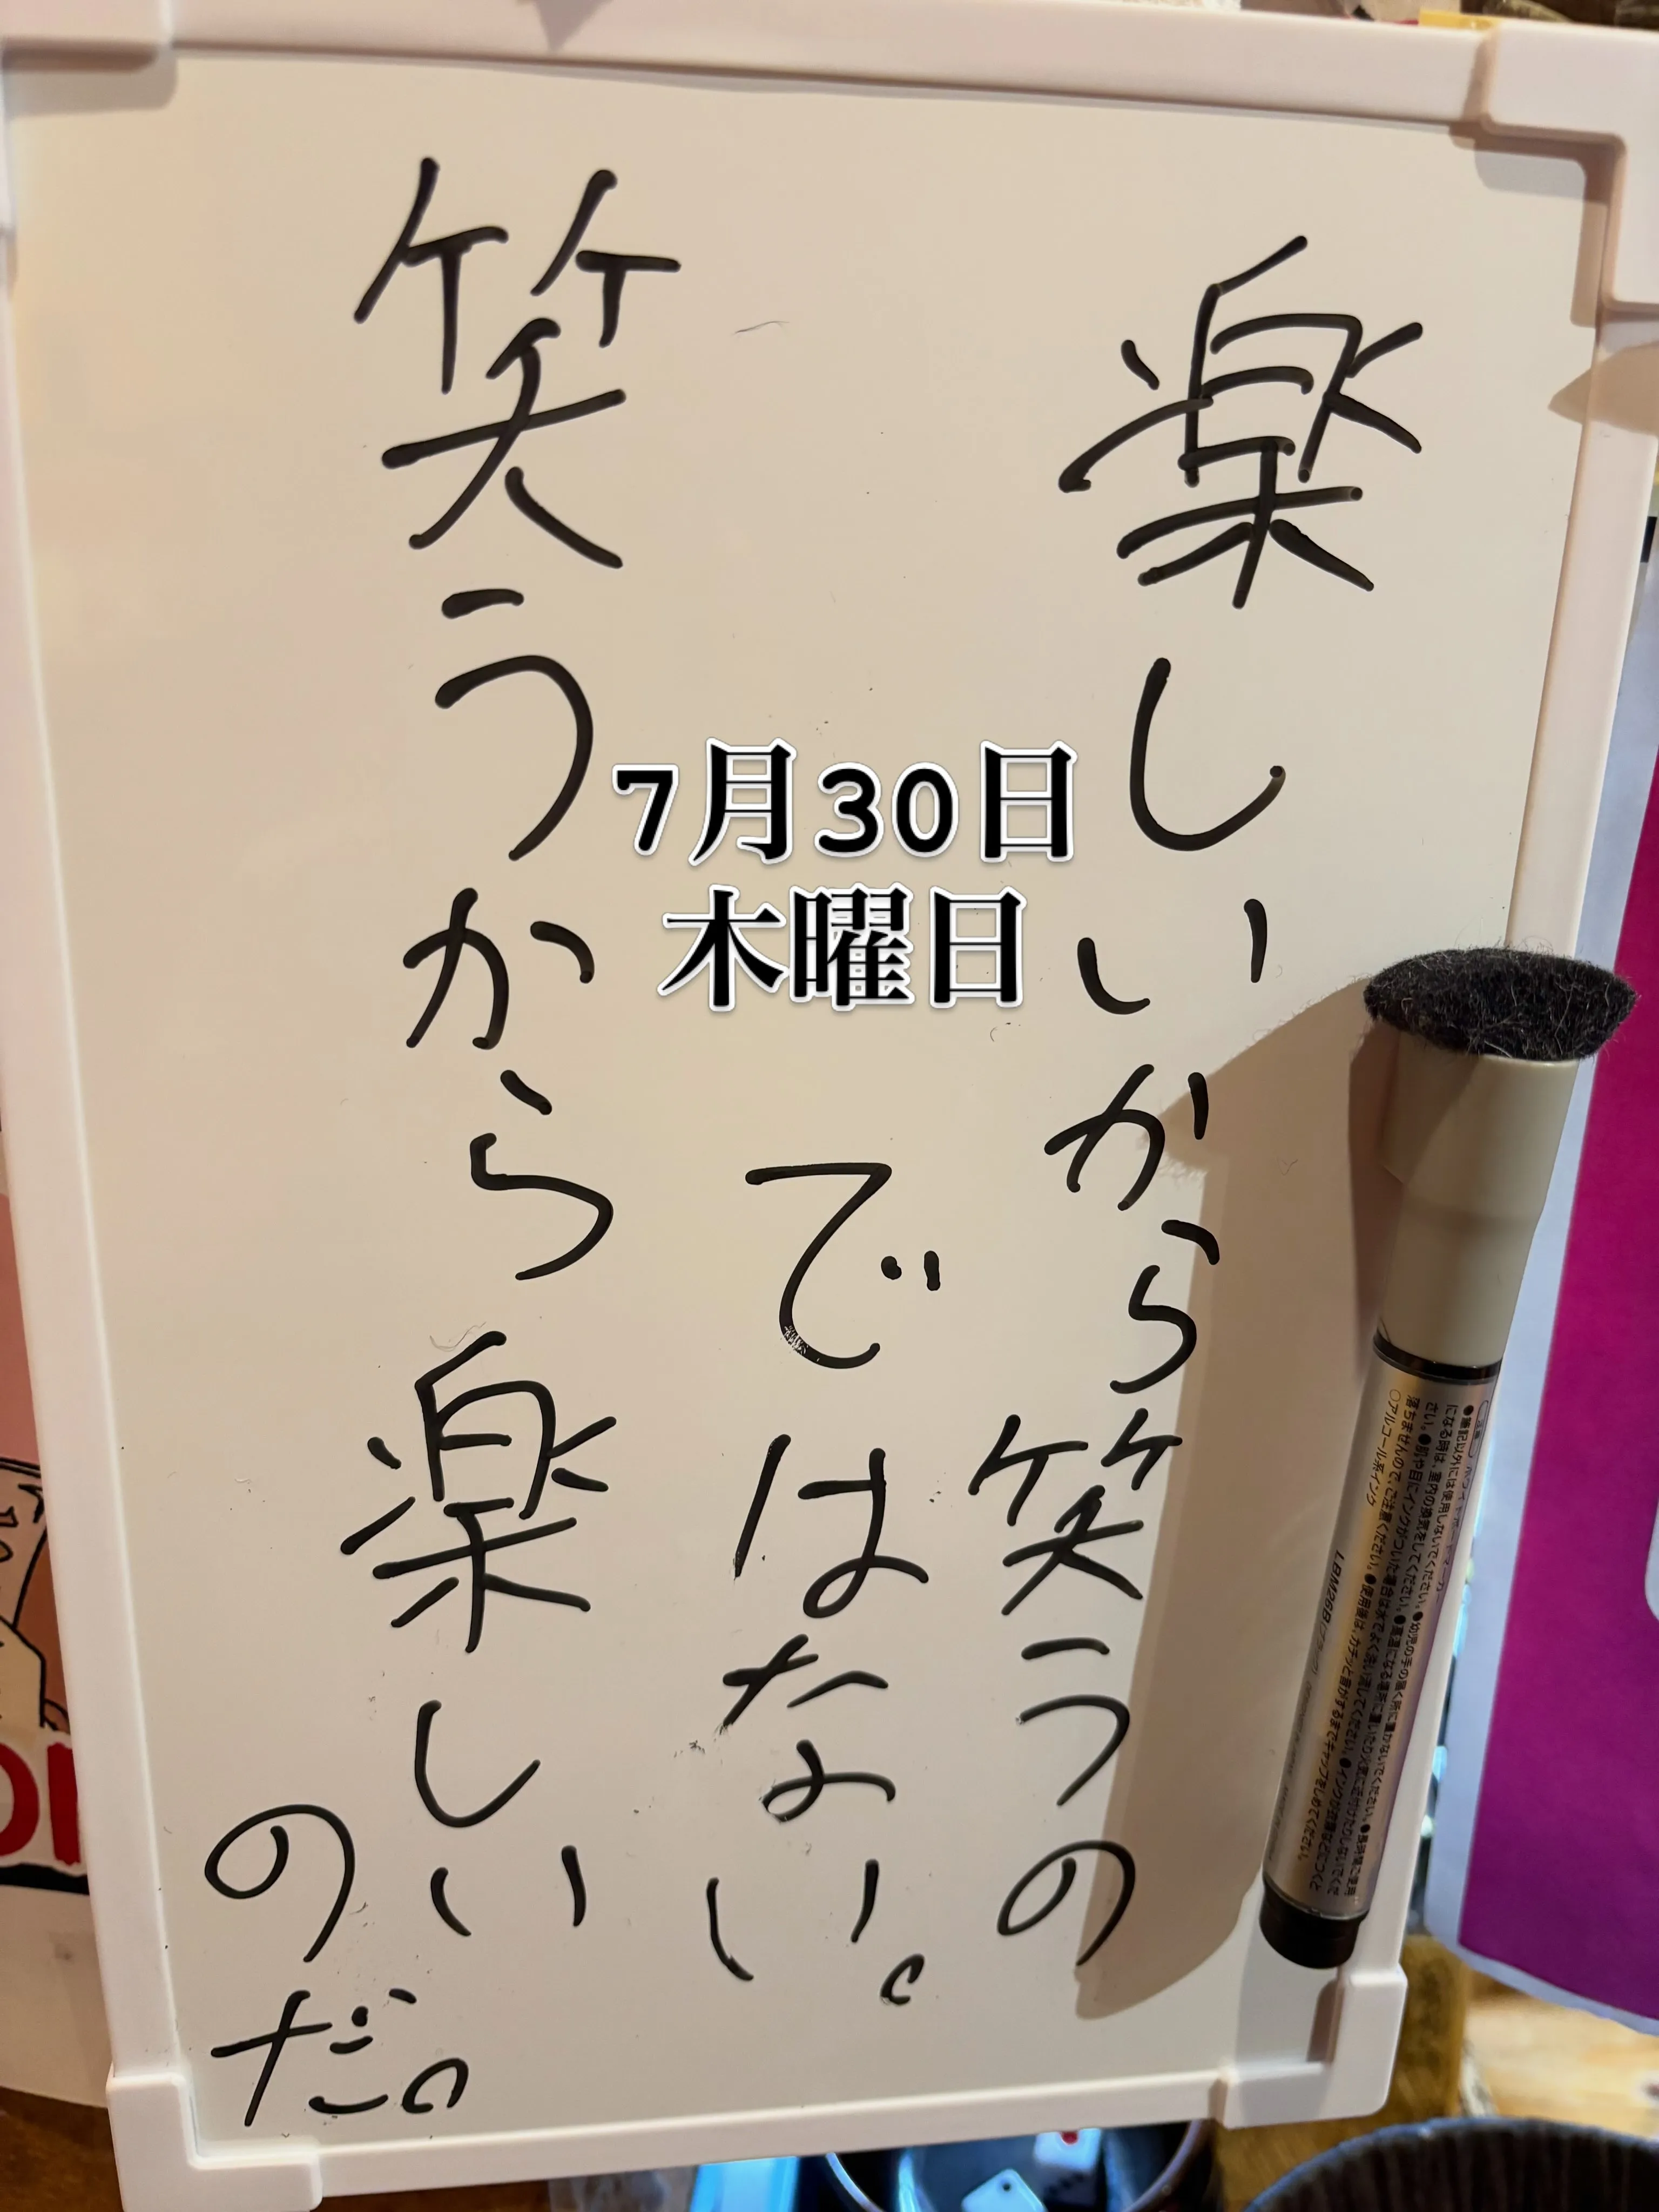 楽しいから笑うの
ではない。
笑うから楽しい
のだ。
7月30日
木曜日
LBM26B